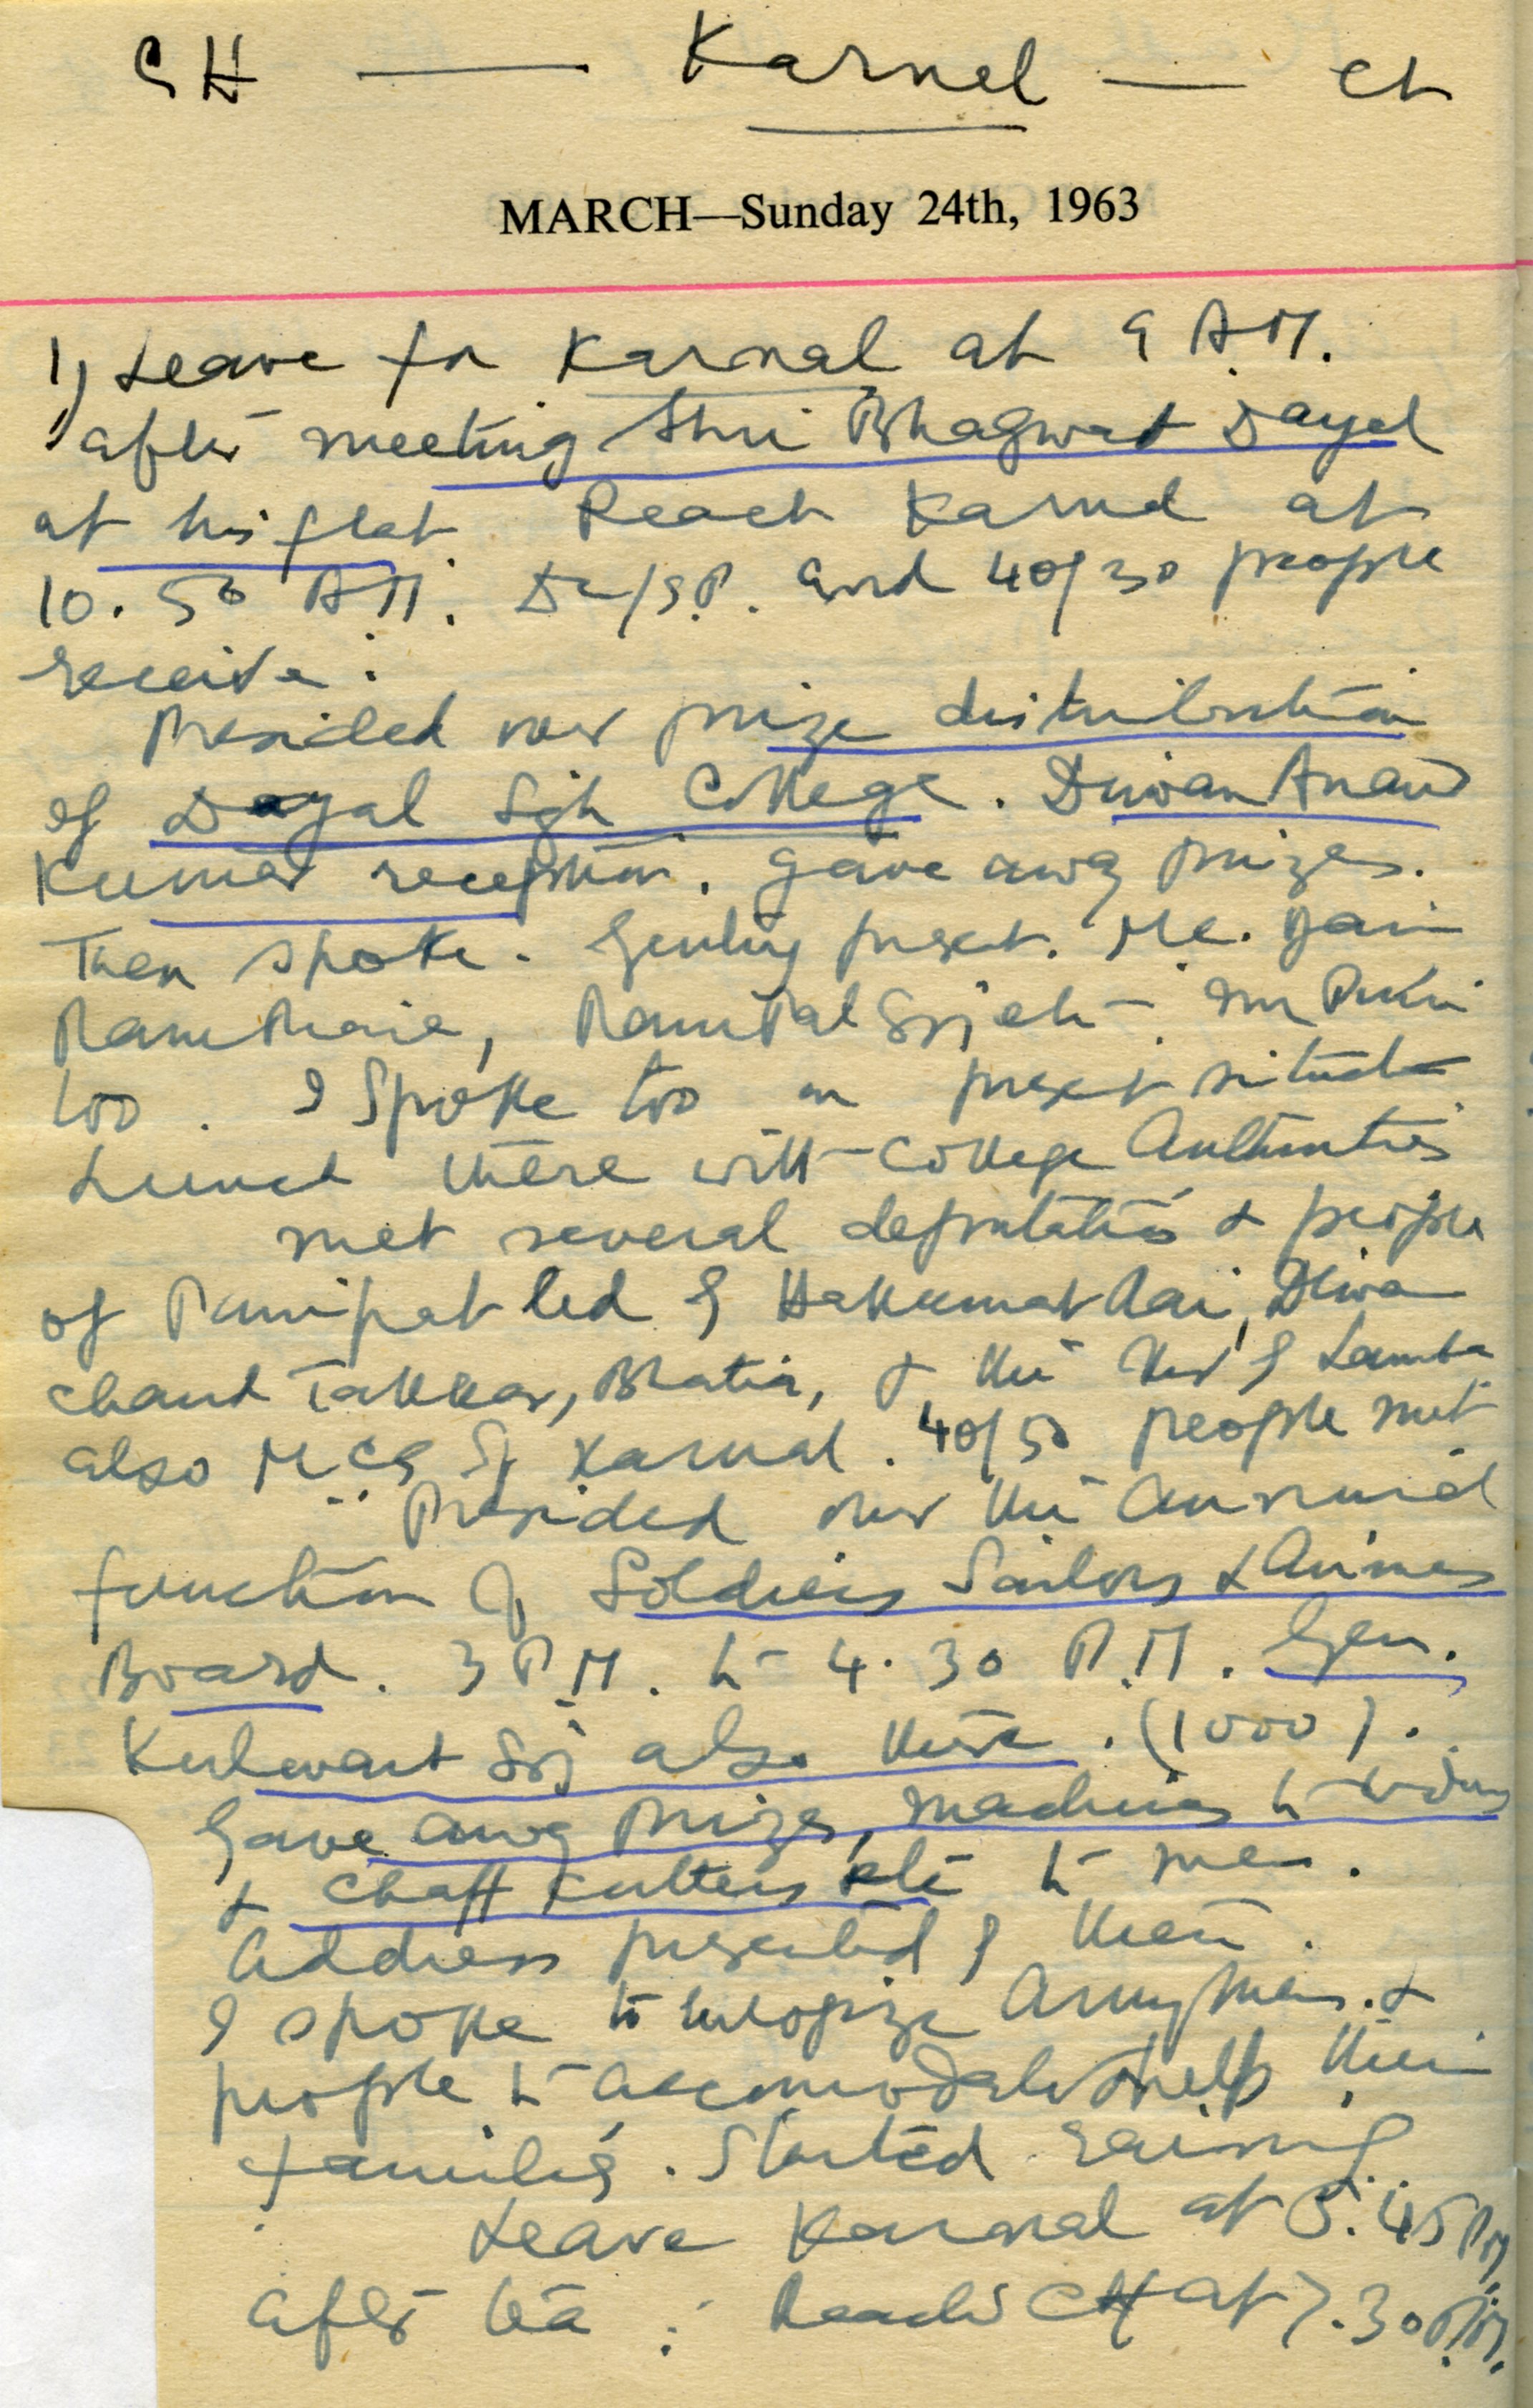 CH — Karnal — Ch
MARCH—Sunday 24th, 1963
1) Leave for Karnal at 9 A.M.
after meeting Shri Bhagwat Dayal
at his flat. Reach Karnal at
10.50 A.M. DC/S.P. and 40/30 people
receive.
Presided over prize distribution
of Dayal Sgh College. Diwan Anand
Kumar reception. gave away prizes.
Then spoke. Gentry present.
too. I spoke too on present situation
Lunch there with College Authorities
met several deputations & people
of Panipat led by Hakumat Rai, Diwan
Chand Takkar, Bhatia, & Lamba
also M.Cs of Karnal. 40/50 people met
Presided over the Annual
function of Soldiers Sailors & Airmen
Board. 3 P.M. to 4.30 P.M. Gen.
Kulwant Sgh also there. (1000).
Gave away prizes, machines to widows
& chaff cutters etc to men.
Address presented by them.
I spoke to eulogize Army men. &
people to accomodate & help their
families. Started raining
Leave Karnal at 5.45 PM.
after tea. Reach CH at 7.30 P.M.